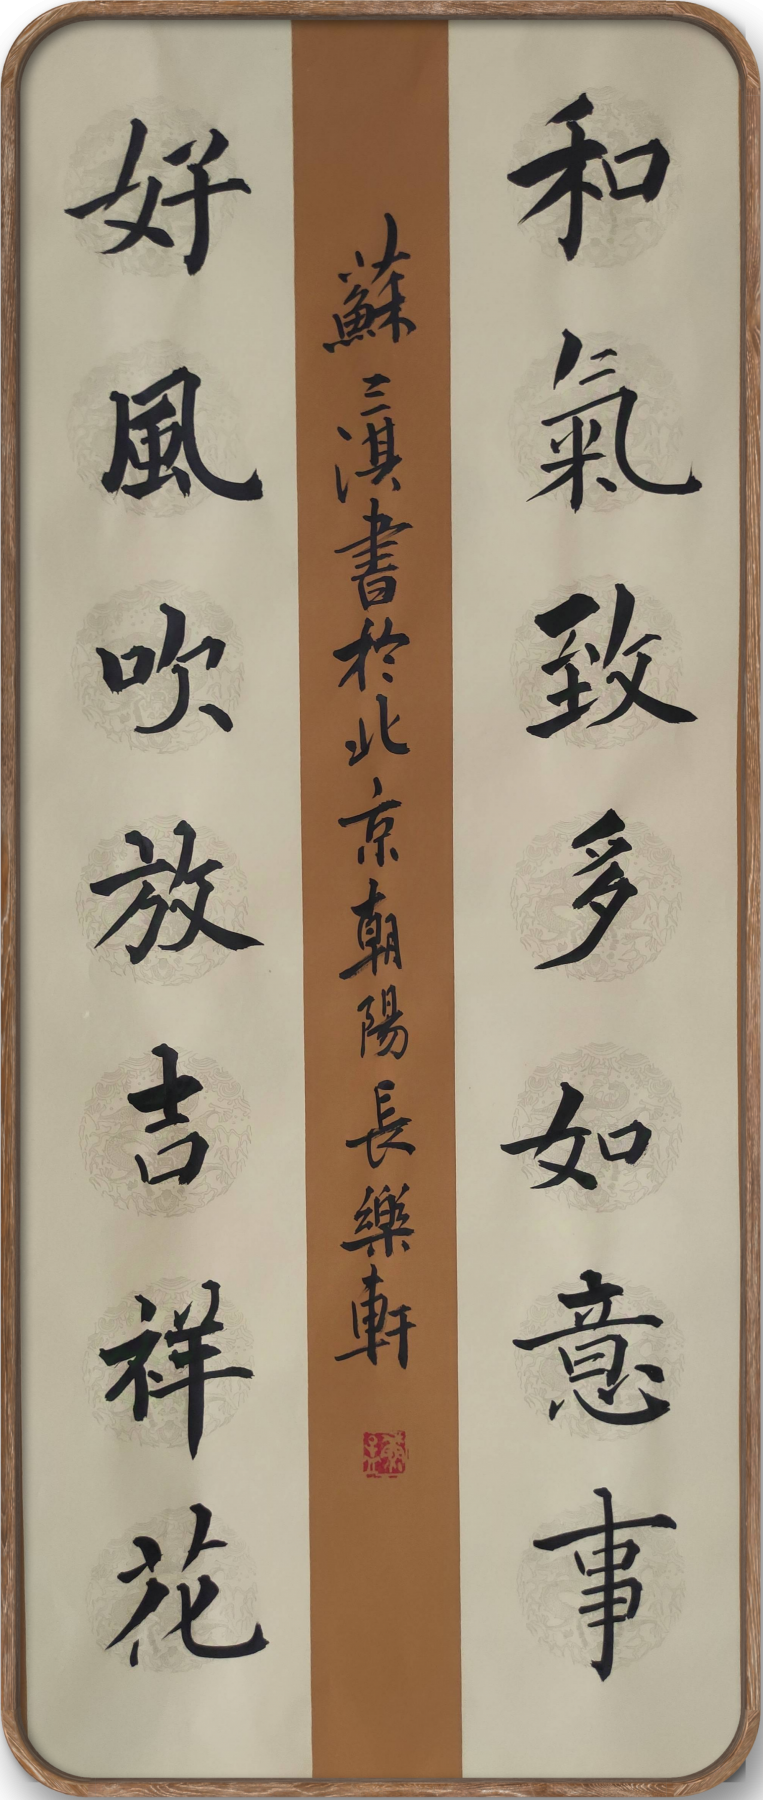 和氣致多如意事
好風吹放吉祥花
蘇三淇書於北京朝陽長樂軒